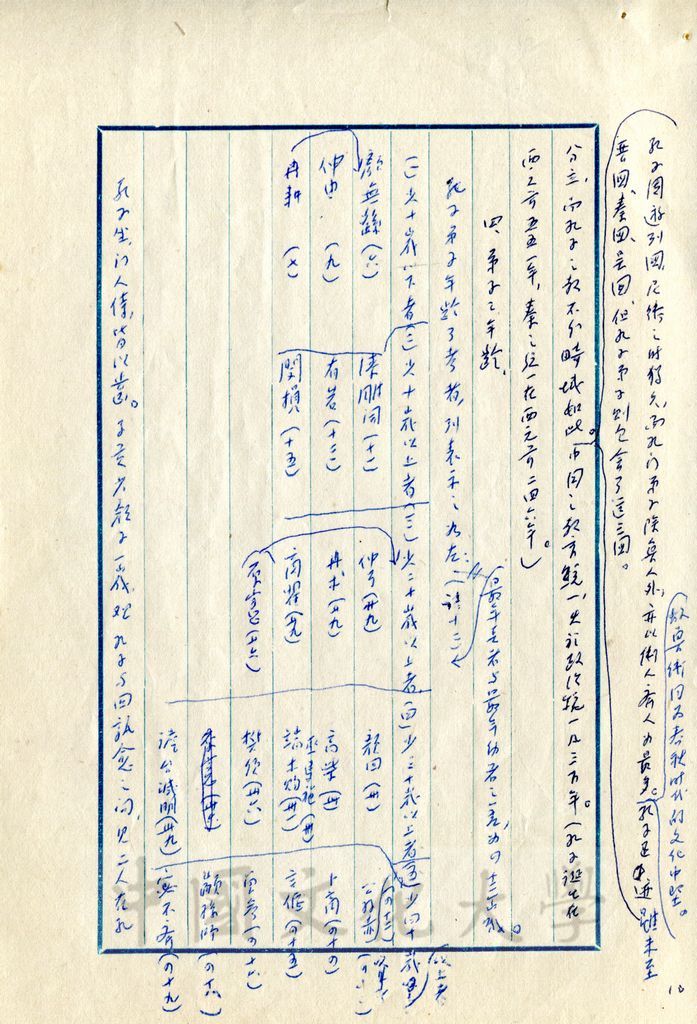 孔子周遊列國,居衛之時稍久,而孔門弟子除魯人外,亦以衛人齊人為最多。孔子足迹雖未至
晉國、秦國、吳國,但孔子弟子則包含了這三國。
故魯衛同為春秋時代的文化中堅。
分立,而孔子之教不分畛域如此。中國之教育統一,先於政治統一凡三百年。(孔子誕生在
西元前五五一年,秦之統一在西元前二四六年。)
四、弟子之年齡
孔子弟子年齡可考者,列表示之如左:(註十二)
最年長者與最年幼者之差為四十三歲。
(一)少十歲以下者
顏無繇(六)
仲由(九)
冉耕(七)
(二)少十歲以上者
漆雕開(十一)
有若(十三)
閔損(十五)
(三)少二十歲以上者
仲弓(廿九)
冉求(廿九)
商瞿(廿九)
原憲(廿六)
(四)少三十歲以上者
顏回(卅)
高柴(卅)
巫馬施(卅)
端木賜(卅一)
樊須(卅六)
澹台滅明(卅九)
(五)少四十歲以上者
公西赤(四十二)
卜商(四十四)
言偃(四十五)
曾參(四十六)
顓孫師(四十八)
宓不齊(四十九)
孔子生,門人侍,皆以齒。子貢少顏子一歲,觀孔子與回孰愈之問,見二人在孔
10
中國文化大學